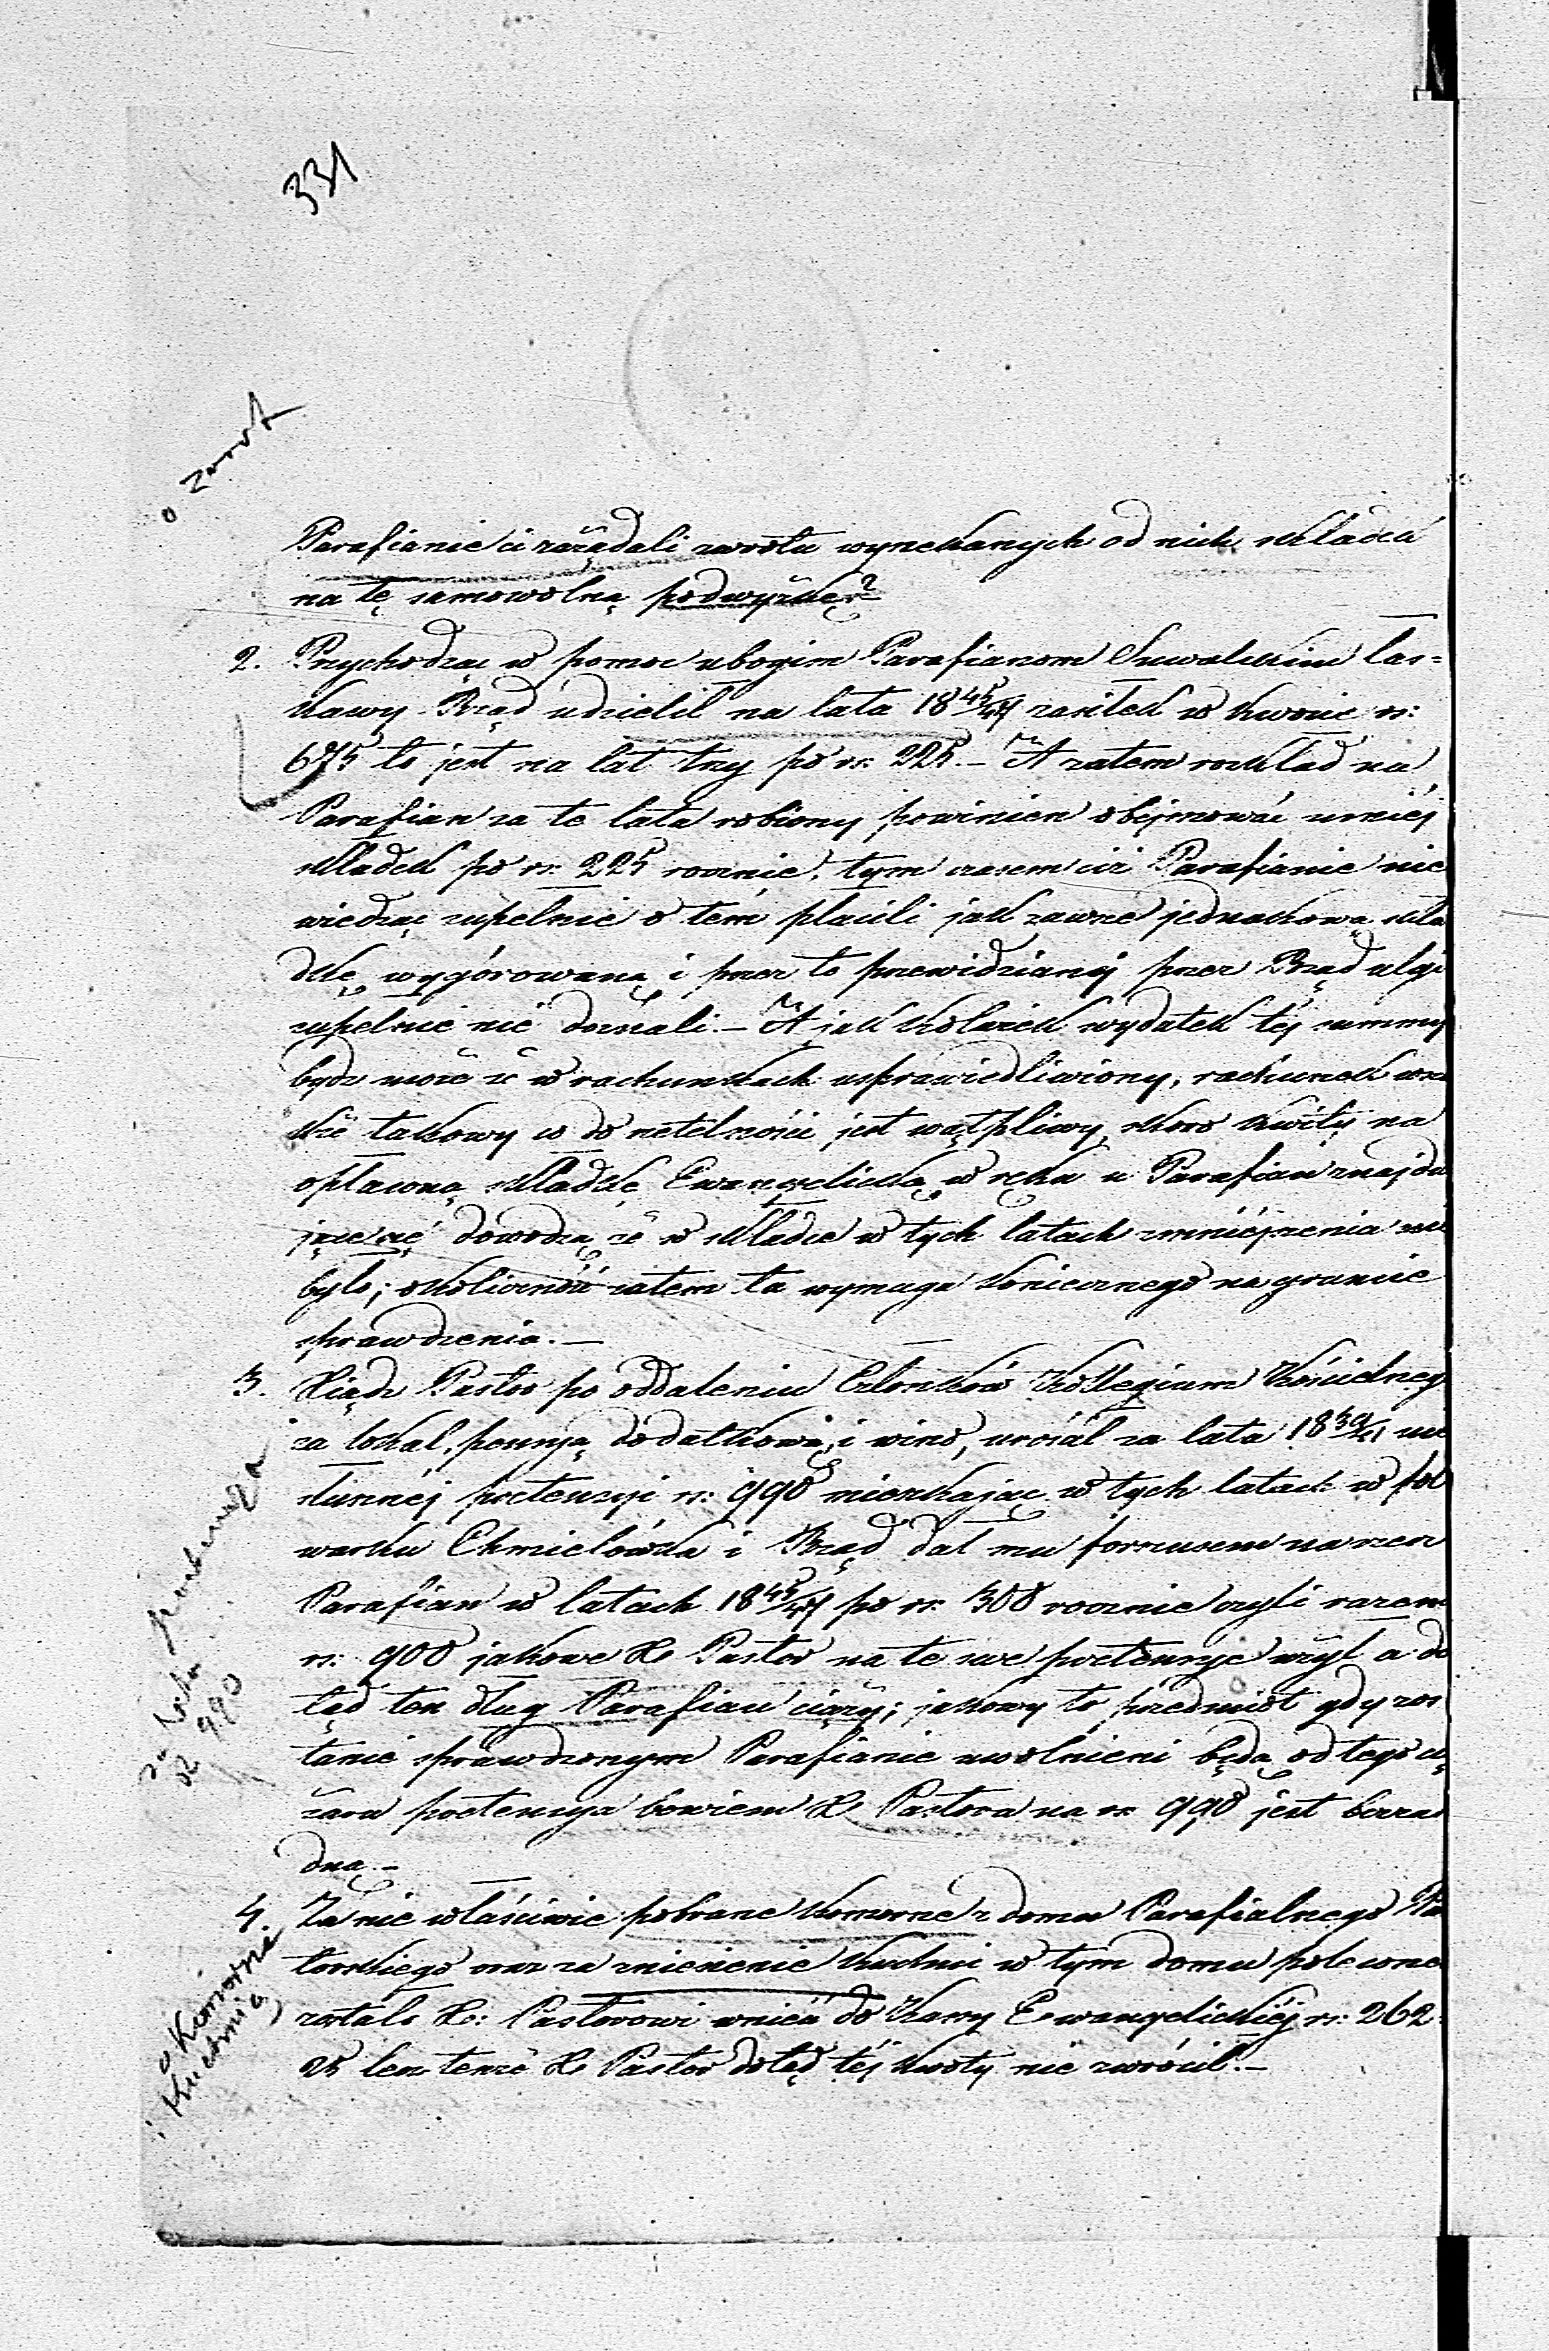 331
o zwrot
Parafianie ci zażądali zwrotu wyneкanych od nich składek
na tę samowolną podwyżkę?
2. Przychodząc w pomoc ubogim Parafianom Suwalskim łas=
kawy Rząd udzielił na lata 1845/47 zasiłek w kwocie rs:
675 to jest na lat trzy po rs. 225. – A zatem rozkład na
Parafian za te lata robiony powinien obejmować mniej
składek po rs. 225 rocznie, tym czasem ciż Parafianie nie
wiedząc zupełnie o tem płacili jak zawsze jednakową skła
dkę wygórowaną i przez to przewidzianej przez Rząd ulgi
zupełnie nie doznali. – A jak kolwiek wydatek tej summy
bydź może że w rachunkach usprawiedliwiony, rachunek wsza
kże takowy co do rzetelności jest wątpliwy, skoro kwity na
opłacną składkę Ewangelicką w ręku u Parafian znajdu
jące się dowodzą że w składce w tych latach zmniejszenia nie
było; okoliczność zatem ta wymaga koniecznego na gruncie
sprawdzenia. –
3. Xiądz Pastor po oddaleniu Członków Kollegium Kościelnego
za lokal, pensyą dodatkową, i wino, urościł za lata 1839/41 nie
słusznej pretensyi rs: 990 mieszkając w tych latach w fol
warku Chmielówka i Rząd dał mu forszusem na rzecz
Parafian w latach 1845/47 po rs. 300 rocznie czyli razem
rs: 900 jakowe X. Pastor na te swe pretensyje użył a do
tąd ten dług Parafian ciąży; jakowy to przedmiot gdy zos
tanie sprawdzonym Parafianie uwolnieni będą od tego cię
żaru pretensya bowiem X. Pastora na rs. 990 jest bezzasa
dną. –
za
rs 990
4. Za nie właściwie pobrane komorne z domu Parafialnego Pas
torskiego oraz za zniesienie kuchni w tym domu polecone
zostało X: Pastorowi wnieść do Kassy Ewangelickiej rs: 262.
25 lecz tenże X. Pastor dotąd tej kwoty nie zwrócił. –
o Komorne
i Kuchnią